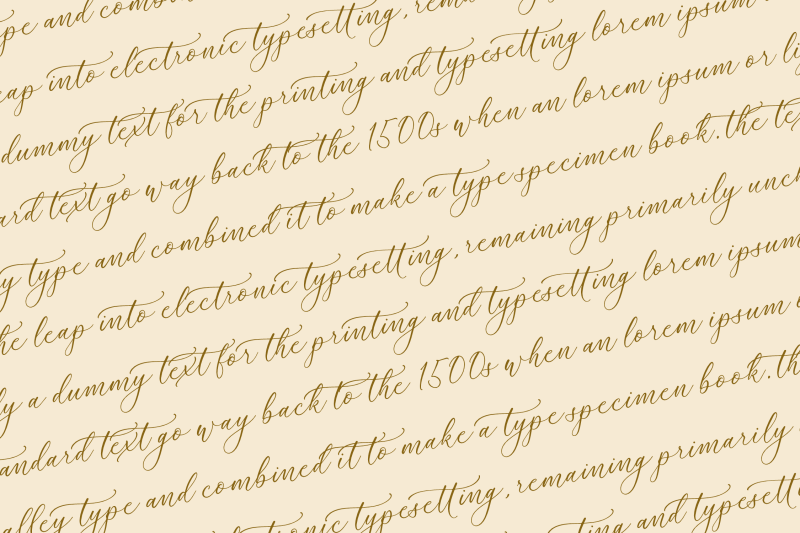 pe and
eap into electronic typesetting,
dummy text for the printing and typesetting lorem ipsum
ard text go way back to the 1500s when an lorem ipsum or
y type and combined it to make a type specimen book. the
he leap into electronic typesetting, remaining primarily
ly a dummy text for the printing and typesetting lorem ipsum
andard text go way back to the 1500s when an lorem ipsum
alley type and combined it to make a type specimen book. th
typesetting, remaining primarily
and typesett